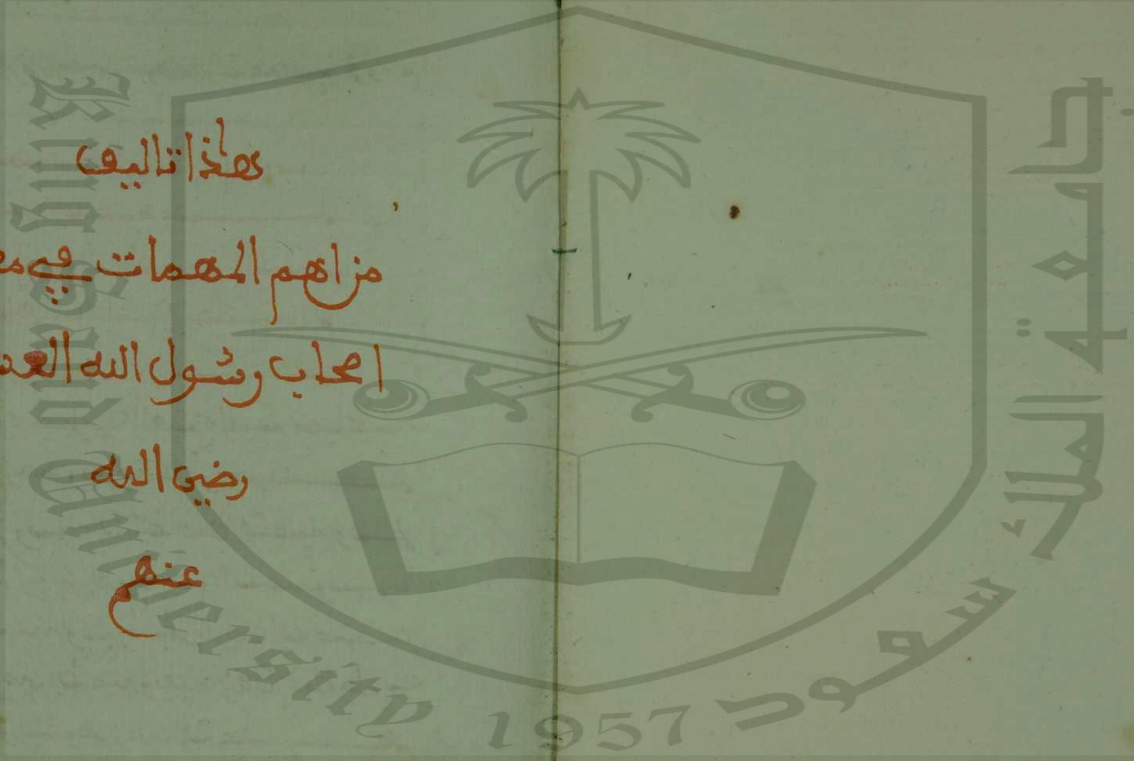 هذا تاليف
من اهم المهمات في
اصحاب رسول الله
رضي الله
عنهم
King Saud University 1957
جامعة الملك سعود